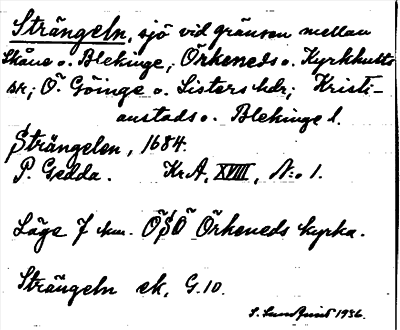 Strängeln, sjö vid gränsen mellan
Skåne o. Blekinge; Örkeneds o. Kyrkhults
sr; Ö. Göinge o. Listers hdr; Kristi-
anstads o. Blekinge l.
Strängelen, 1684.
P. Gedda. Kr.A, XVIII, N:o 1.
Läge 7 km. ÖSÖ Örkeneds kyrka.
Strängeln ek. G.10.
S. Lundquist 1936.